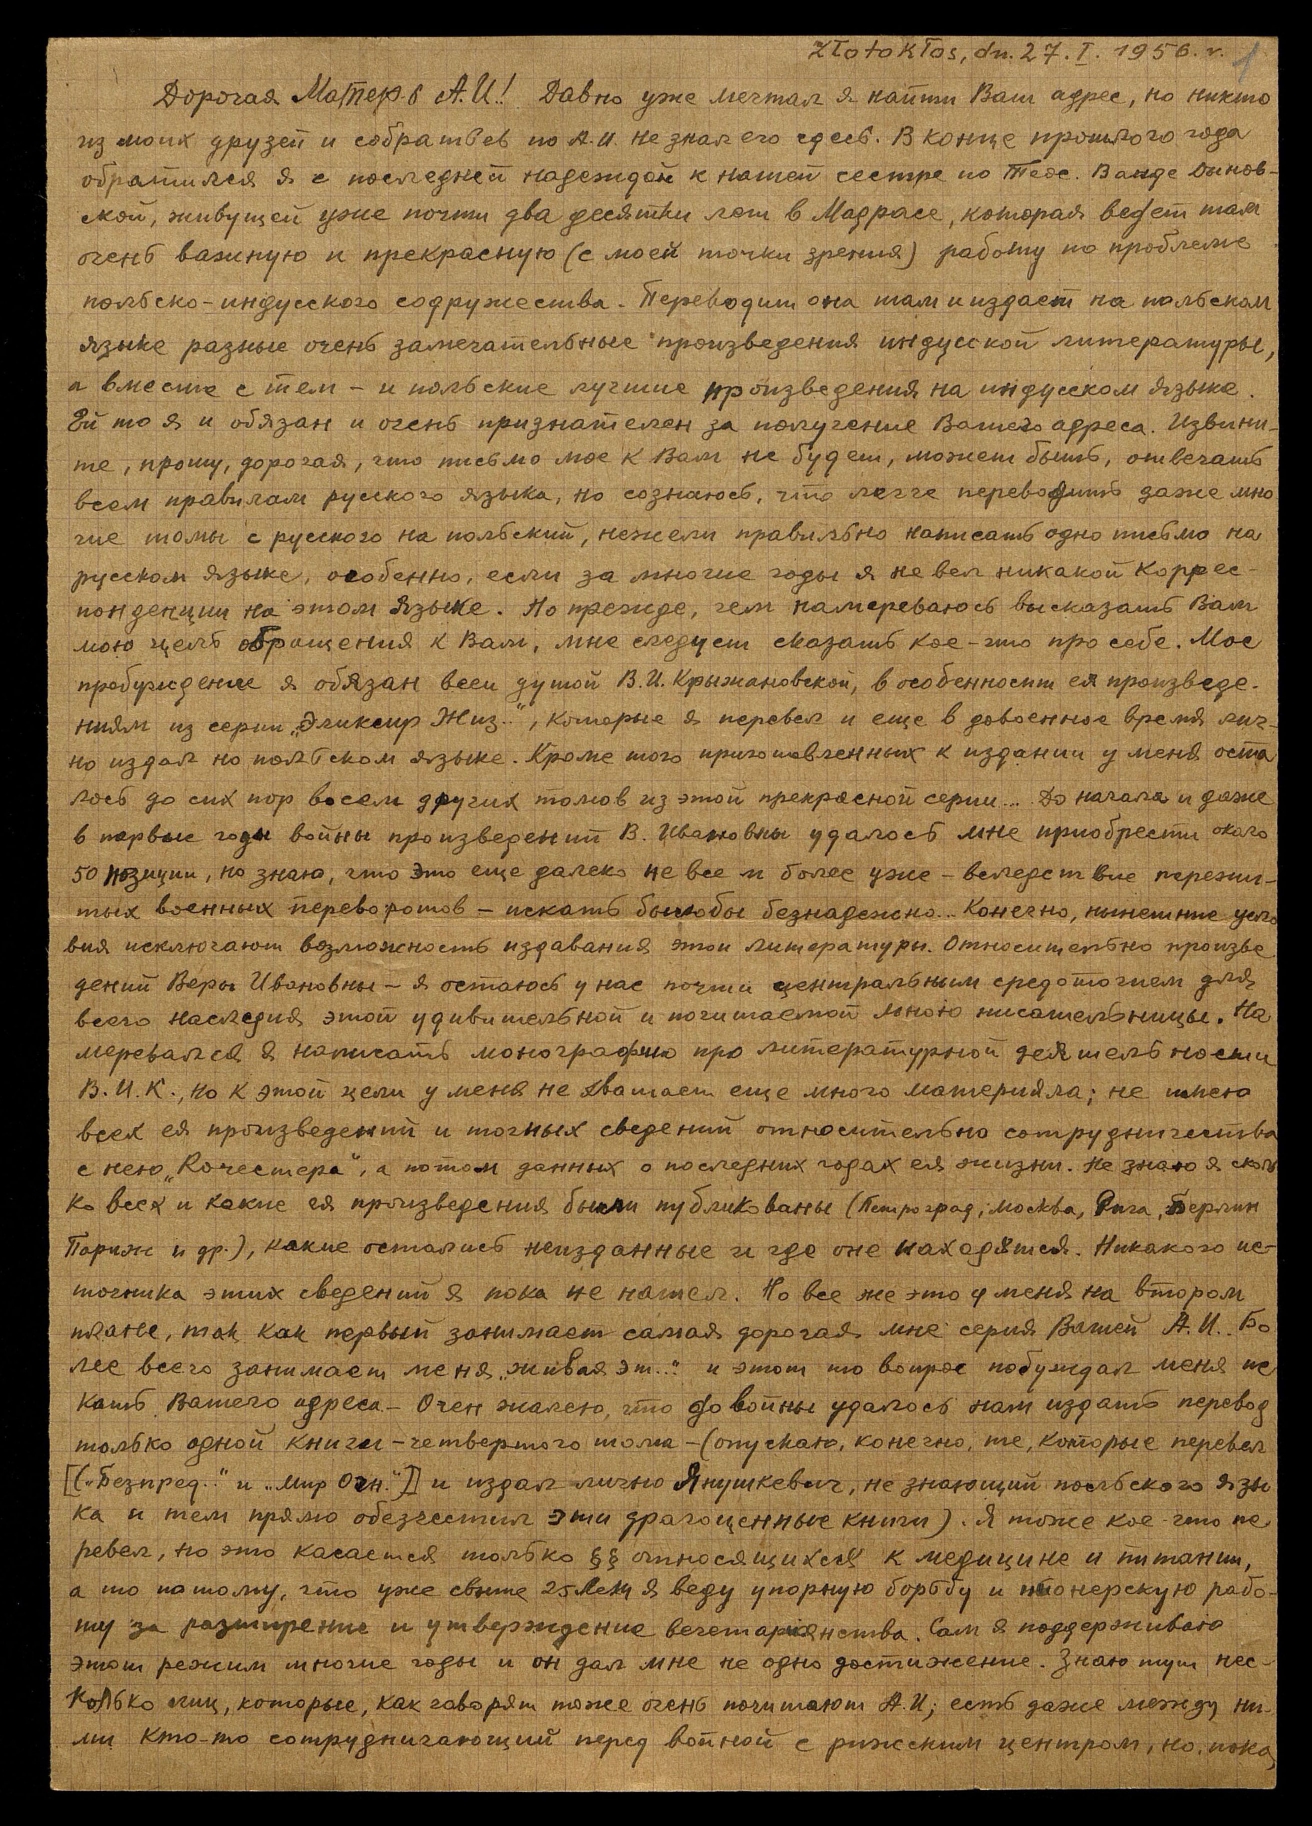 Złotokłos, dn. 27. I. 1956. r. 1
Дорогая Матерь А.И.! Давно уже мечтал я найти Ваш адрес, но никто
из моих друзей и собратьев по А.И. не знал его здесь. В конце прошлого года
обратился я с последней надеждой к нашей сестре по Теос. Ванде Динов-
ской, живущей уже почти два десятки лет в Мадрасе, которая ведет там
очень важную и прекрасную (с моей точки зрения) работу по проблеме
польско-индусского содружества. Переводит она там и издает на польском
языке разные очень замечательные произведения индусской литературы,
а вместе с тем – и польские лучшие произведения на индусском языке.
Ей то я и обязан и очень признателен за получение Вашего адреса. Извини-
те, прошу, дорогая, что письмо мое к Вам не будет, может быть, отвечать
всем правилам русского языка, но сознаюсь, что легче переводить даже мно
гие томы с русского на польский, нежели правильно написать одно письмо на
русском языке, особенно, если за многие годы я не вел никакой коррес-
понденции на этом языке. Но прежде, чем намереваюсь высказать Вам
мою цель обращения к Вам, мне следует сказать кое-что про себе. Мое
пробуждение я обязан всей душой В.И. Крыжановской, в особенности ея произведе-
ниям из серии „Эликсир Жиз..", которые я перевел и еще в довоенное время лич-
но издал но польском языке. Кроме того приготовленных к издании у меня оста
лось до сих пор восем других томов из этой прекрасной серии... До начала и даже
в первые годы войны произведений В. Ивановны удалось мне приобрести около
50 позиции, но знаю, что это еще далеко не все и более уже – вследствие пережи-
тых военных переворотов – искать былобы безнадежно.. Конечно, нынешние усло
вия исключают возможность издавания этой литературы. Относительно произве
дений Веры Ивановны – я остаюсь у нас почти центральным средоточием для
всего наследия этой удивительной и почитаемой мною писательницы. На
меревался я написать монографию про литературной деятельности
В.И.К., но к этой цели у меня не хватает еще много материяла; не имею
всех ея произведений и точных сведений относительно сотрудничества
с нею „Рочестера", а потом данных о последних годах ея жизни. Не знаю я сколь
ко всех и какие ея произведения были публикованы (Петроград, Москва, Рига, Берлин
Париж и др.), какие остались неизданные и где оне находятся. Никакого ис-
точника этих сведений я пока не нашел. Но все же это у меня на втором
плане, так как первый занимает самая дорогая мне серия Вашей А.И. Бо
лее всего занимает меня „живая эт..." и этот то вопрос побуждал меня ис
кать Вашего адреса – Очен жалею, что до войны удалось нам издать перевод
только одной книги – четвертого тома – (опускаю, конечно, те, которые перевел
[(„Безпред.." и „Мир Огн.")] и издал лично Янушкевич, не знающий польского язы
ка и тем прямо обезчестил эти драгоценные книги). Я тоже кое-что пе
ревел, но это касается только §§ относящихся к медицине и питании,
а то потому, что уже свыше 25 лет я веду упорную борьбу и пионерскую рабо-
ту за разширение и утверждение вегетариянства. Сам я поддерживаю
этот режим многие годы и он дал мне не одно достижение. Знаю тут нес-
колько лиц, которые, как говорят тоже очень почитают А.И; есть даже между ни-
ми кто-то сотрудничающий перед войной с рижским центром, но, пока